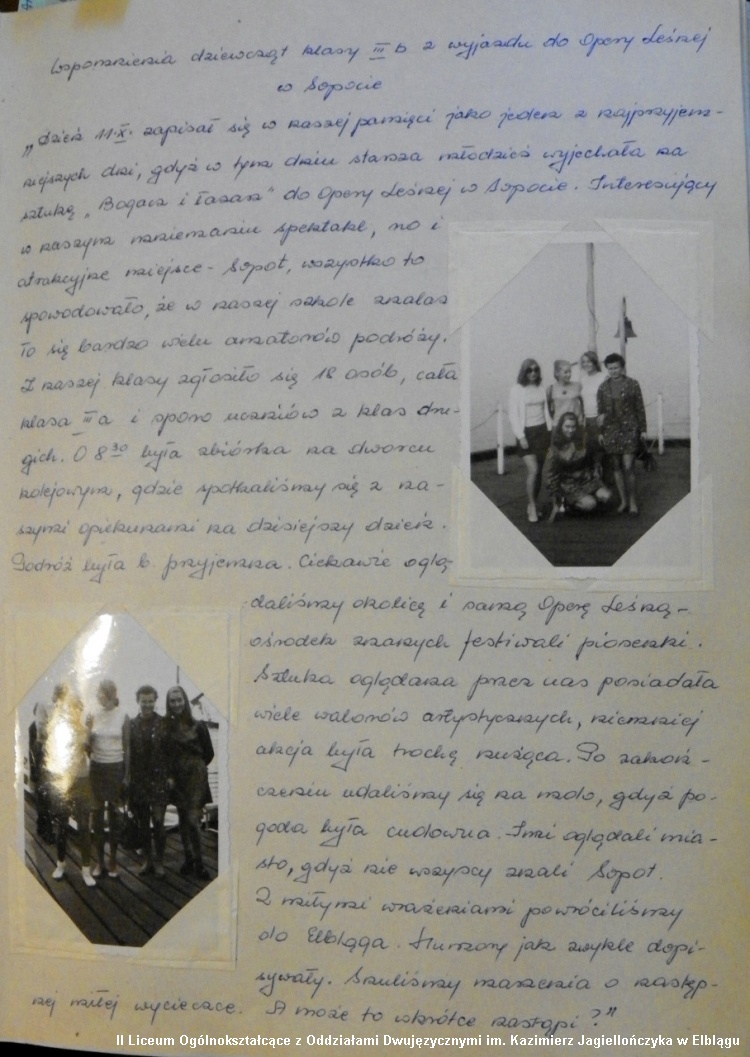 Wspomnienia dziewcząt klasy III b z wyjazdu do Opery Leśnej
w Sopocie
„Dzień 11.X. zapisał się w naszej pamięci jako jeden z najprzyjem-
niejszych dni, gdyż w tym dniu starsza młodzież wyjechała na
sztukę „Bogacz i Łazarz" do Opery Leśnej w Sopocie. Interesujący
w naszym mniemaniu spektakl, no i
atrakcyjne miejsce - Sopot, wszystko to
spowodowało, że w naszej szkole znalaz
ło się bardzo wielu amatorów podróży.
Z naszej klasy zgłosiło się 18 osób, cała
klasa III a i sporo uczniów z klas dru-
gich. O 8 30 była zbiórka na dworcu
kolejowym, gdzie spotkaliśmy się z na-
szymi opiekunami na dzisiejszy dzień.
Podróż była b. przyjemna. Ciekawie oglą-
daliśmy okolicę i samą Operę Leśną -
ośrodek znanych festiwali piosenki.
Sztuka oglądana przez nas posiadała
wiele walorów artystycznych, niemniej
akcja była trochę nużąca. Po zakoń-
czeniu udaliśmy się na molo, gdyż po-
goda była cudowna. Inni oglądali mia-
sto, gdyż nie wszyscy znali Sopot.
Z miłymi wrażeniami powróciliśmy
do Elbląga. Humory jak zwykle dopi-
sywały. Snuliśmy marzenia o następ-
nej miłej wycieczce. A może to wkrótce nastąpi?"
II Liceum Ogólnokształcące z Oddziałami Dwujęzycznymi im. Kazimierz Jagiellończyka w Elblągu